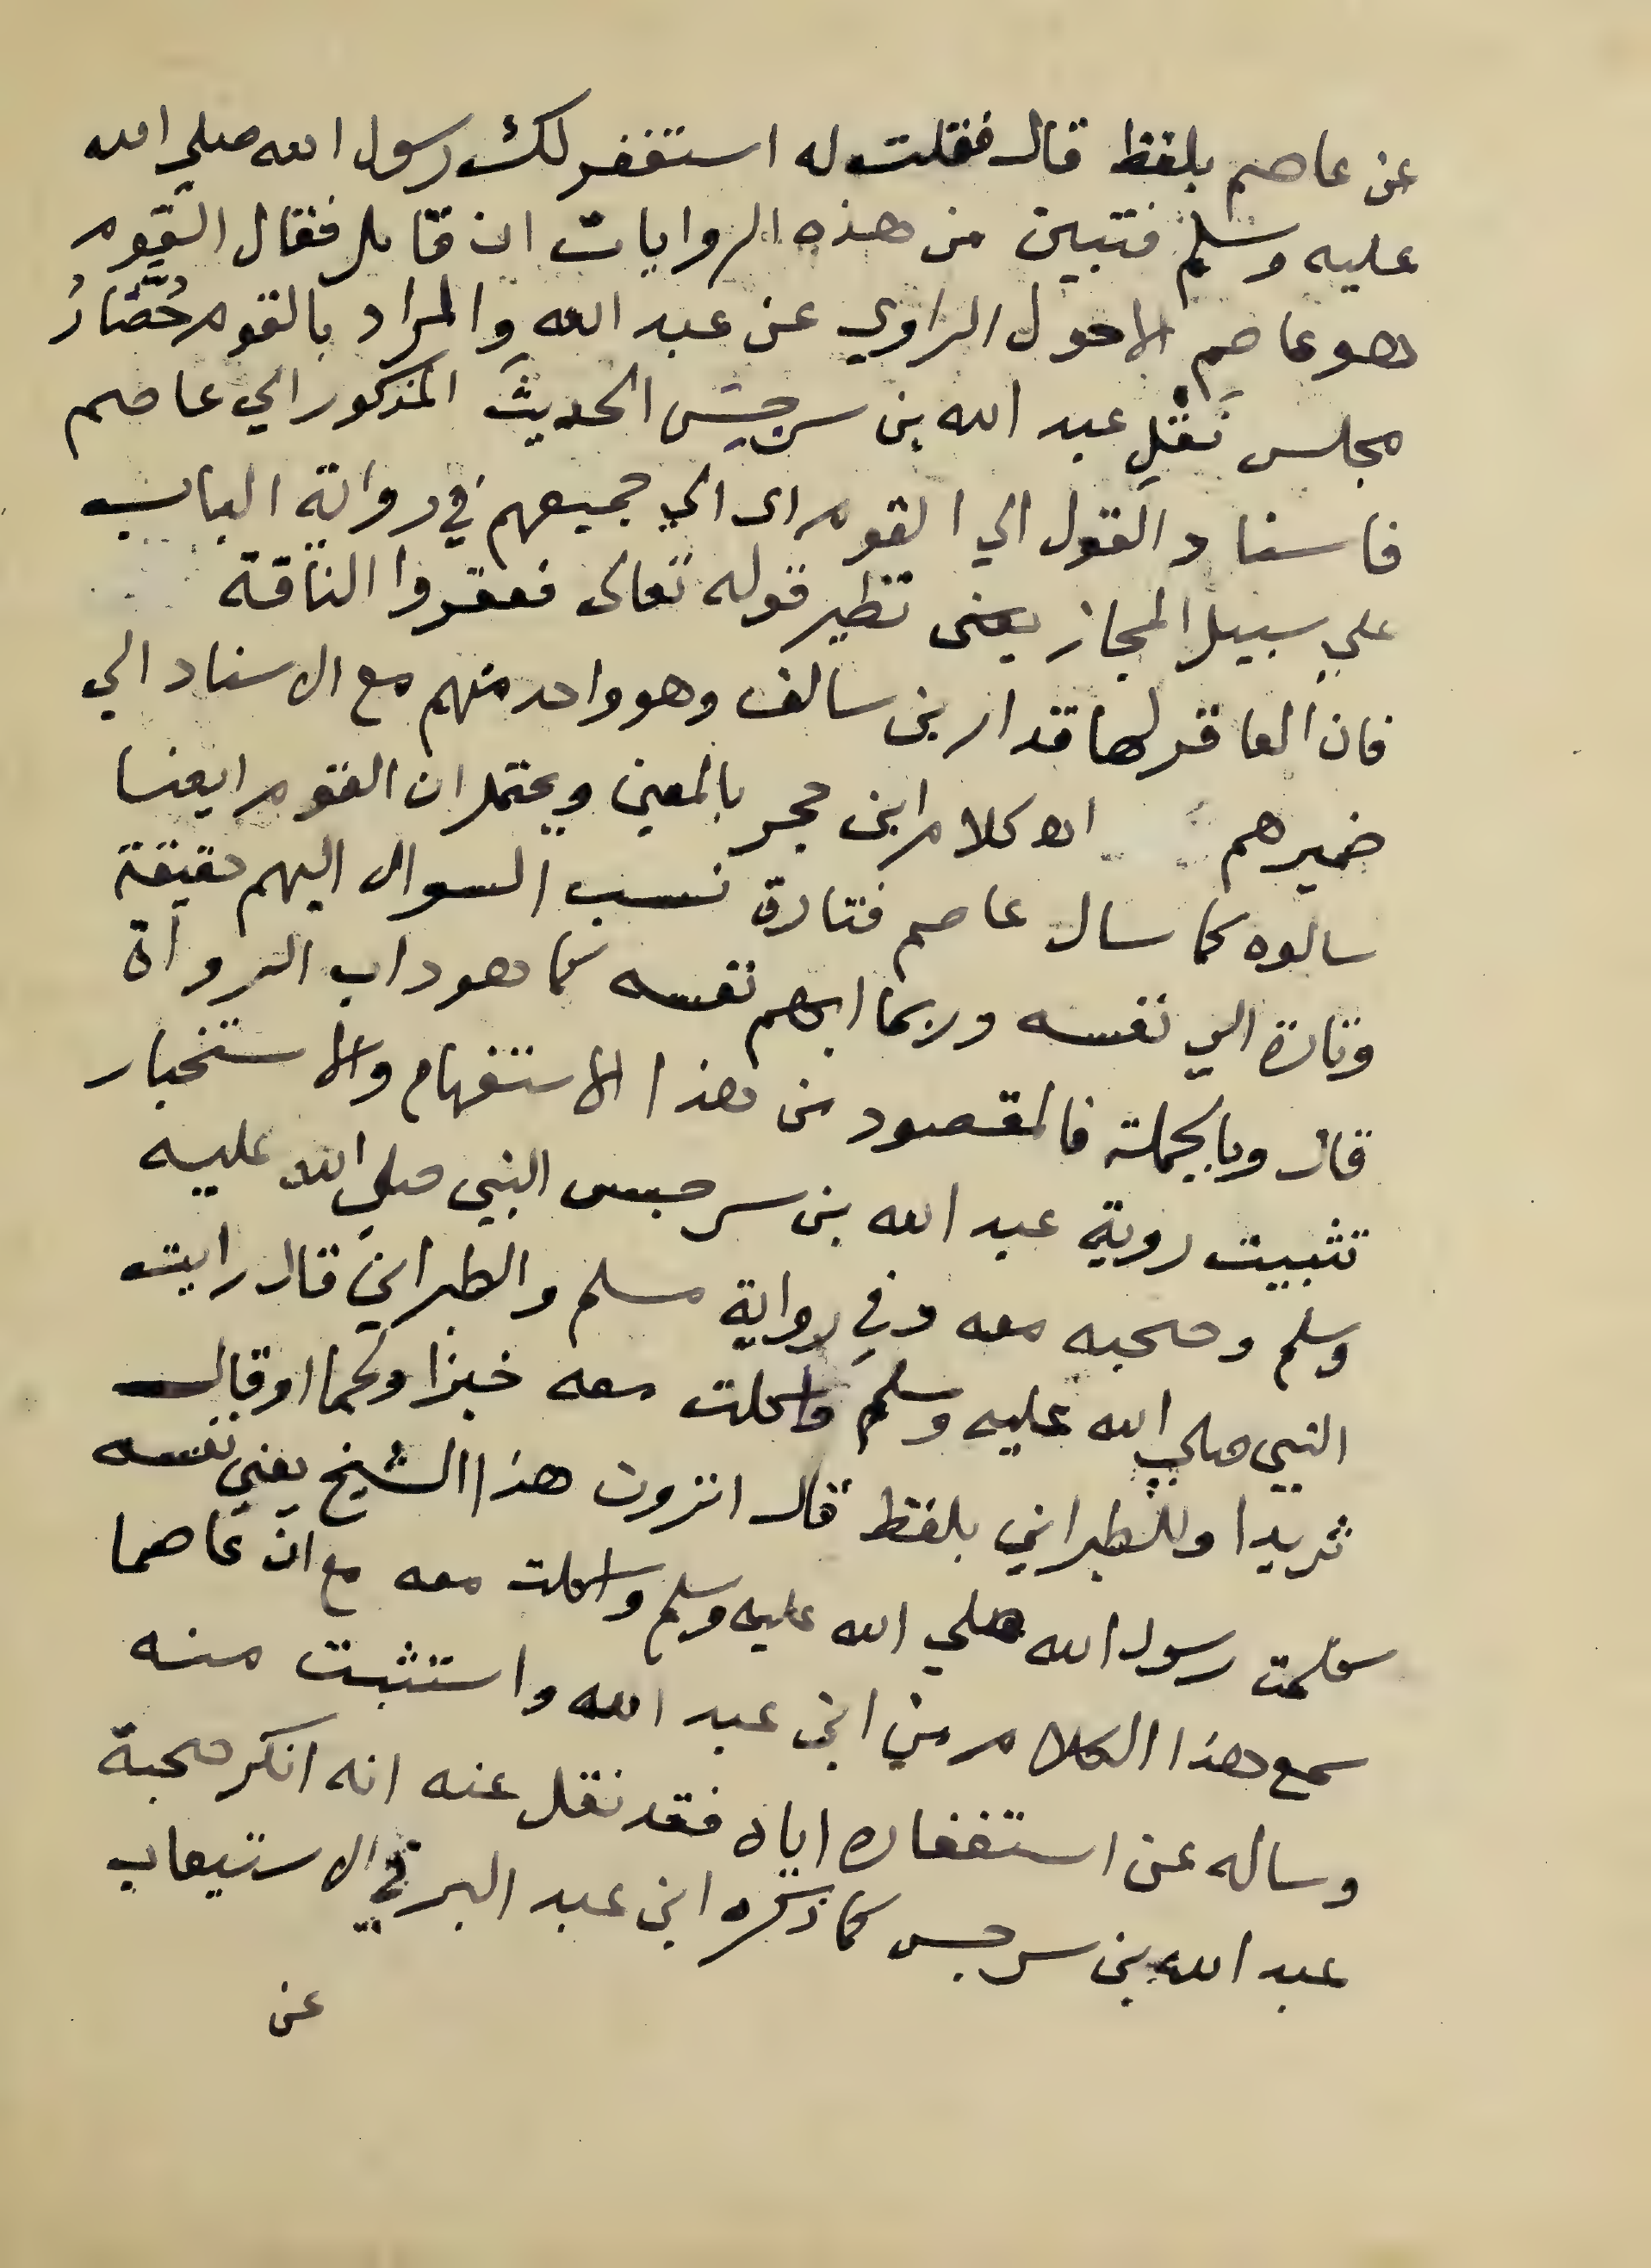 عن عاصم بلفظ قال فقلت له استغفر لك رسول الله صلي الله
عليه وسلم فتبين من هذه الروايات ان قايل فقال القوم
هو عاصم الاحول الراوي عن عبد الله والمراد بالقوم حُضَّارُ
مجلس نَقْلِ عبد الله بن سرجس الحديثَ المذكور الي عاصم
فاسناد القول الي القوم اي الي جميعهم في رواية الباب
علي سبيل المجاز يعني نظير قوله تعالى فعقروا الناقة
فان العاقر لها قدار بن سالف وهو واحد منهم مع الاسناد الي
ضميرهم اه كلام ابن حجر بالمعين ويحتمل ان القوم ايضا
سالوه كما سال عاصم فتارة نسب السوال اليهم حقيقة
وتارة الي نفسه وربما ابهم نفسه كما هو داب الرواة
قال وبالجملة فالمقصود من هذا الاستفهام والاستخبار
تثبيت روية عبد الله بن سرجس النبي صلي الله عليه
وسلم وصحبه معه وفي رواية مسلم والطبراني قال رايت
النبي صلي الله عليه وسلم واكلت معه خبزا ولحما او قال
ثريدا وللطبراني بلفظ قال اترون هذا الشيخ يعني نفسه
كلمت رسول الله صلي الله عليه وسلم واكلت معه مع ان عاصما
سمع هذا الكلام من ابن عبد الله واستثبت منه
وساله عن استغفاره اياه فقد نقل عنه انه انكر صحبة
عبد الله بن سرجس كما ذكره ابن عبد البر في الاستيعاب
عن